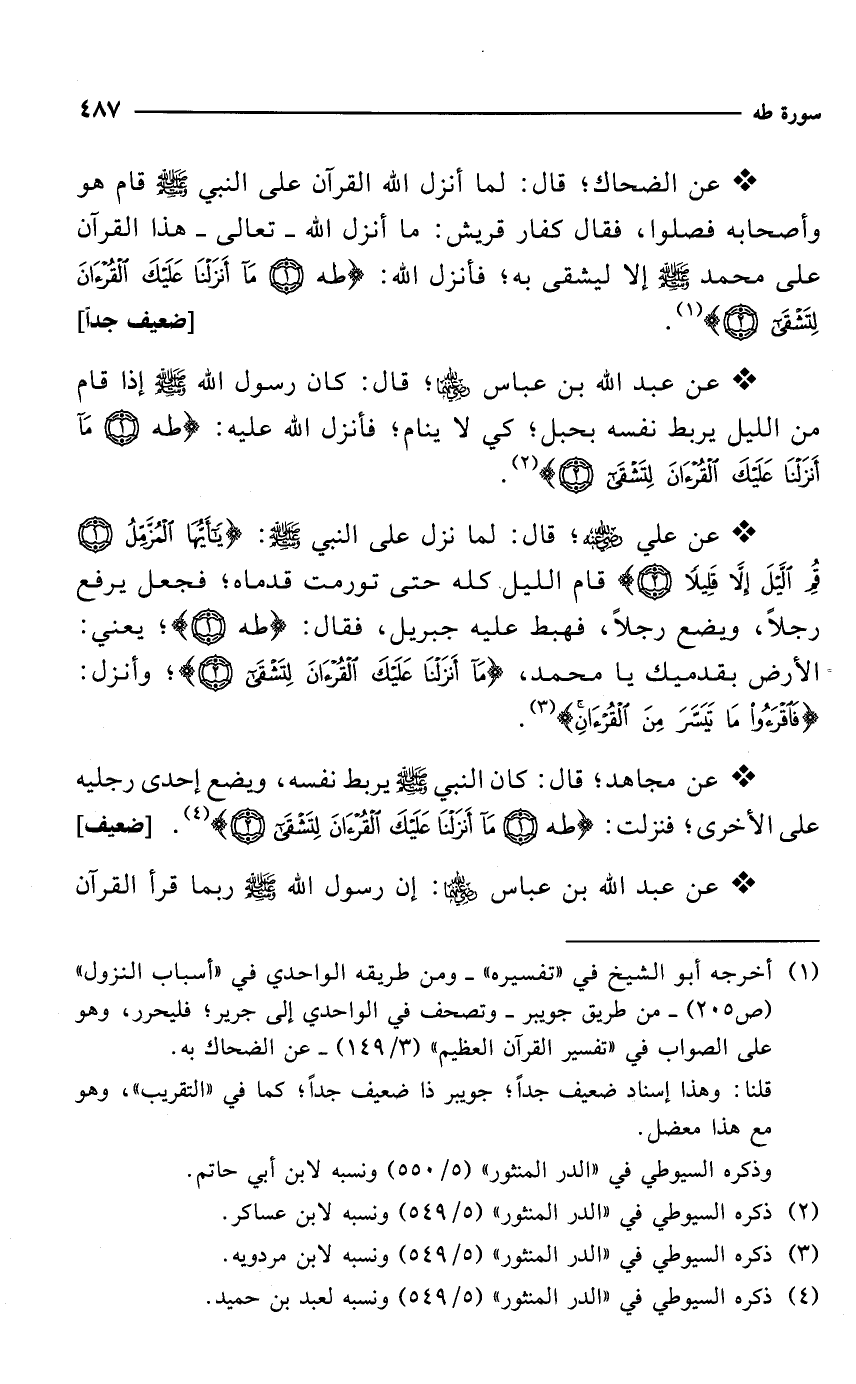 سورة طه ٤٨٧
❖ عن الضحاك؛ قال: لما أنزل الله القرآن على النبي ﷺ قام هو
وأصحابه فصلوا، فقال كفار قريش: ما أنزل الله ـ تعالى ـ هذا القرآن
على محمد ﷺ إلا ليشقى به؛ فأنزل الله: ﴿طه ۝١ مَآ أَنزَلْنَا عَلَيْكَ ٱلْقُرْءَانَ
لِتَشْقَىٰٓ ۝٢﴾(١). [ضعيف جداً]
❖ عن عبد الله بن عباس رضي الله عنهما؛ قال: كان رسول الله ﷺ إذا قام
من الليل يربط نفسه بحبل؛ كي لا ينام؛ فأنزل الله عليه: ﴿طه ۝١ مَآ
أَنزَلْنَا عَلَيْكَ ٱلْقُرْءَانَ لِتَشْقَىٰٓ ۝٢﴾(٢).
❖ عن علي رضي الله عنه؛ قال: لما نزل على النبي ﷺ: ﴿يَٰٓأَيُّهَا ٱلْمُزَّمِّلُ ۝١
قُمِ ٱلَّيْلَ إِلَّا قَلِيلًا ۝٢﴾ قام الليل كله حتى تورمت قدماه؛ فجعل يرفع
رجلاً، ويضع رجلاً، فهبط عليه جبريل، فقال: ﴿طه ۝١﴾؛ يعني:
الأرض بقدميك يا محمد، ﴿مَآ أَنزَلْنَا عَلَيْكَ ٱلْقُرْءَانَ لِتَشْقَىٰٓ ۝٢﴾؛ وأنزل:
﴿فَٱقْرَءُوا۟ مَا تَيَسَّرَ مِنَ ٱلْقُرْءَانِ ۚ﴾(٣).
❖ عن مجاهد؛ قال: كان النبي ﷺ يربط نفسه، ويضع إحدى رجليه
على الأخرى؛ فنزلت: ﴿طه ۝١ مَآ أَنزَلْنَا عَلَيْكَ ٱلْقُرْءَانَ لِتَشْقَىٰٓ ۝٢﴾(٤). [ضعيف]
❖ عن عبد الله بن عباس رضي الله عنهما: إن رسول الله ﷺ ربما قرأ القرآن
(١) أخرجه أبو الشيخ في «تفسيره» ـ ومن طريقه الواحدي في «أسباب النزول»
(ص٢٠٥) ـ من طريق جويبر ـ وتصحف في الواحدي إلى جرير؛ فليحرر، وهو
على الصواب في «تفسير القرآن العظيم» (٣/ ١٤٩) ـ عن الضحاك به.
قلنا: وهذا إسناد ضعيف جداً؛ جويبر ذا ضعيف جداً؛ كما في «التقريب»، وهو
مع هذا معضل.
وذكره السيوطي في «الدر المنثور» (٥/ ٥٥٠) ونسبه لابن أبي حاتم.
(٢) ذكره السيوطي في «الدر المنثور» (٥/ ٥٤٩) ونسبه لابن عساكر.
(٣) ذكره السيوطي في «الدر المنثور» (٥/ ٥٤٩) ونسبه لابن مردويه.
(٤) ذكره السيوطي في «الدر المنثور» (٥/ ٥٤٩) ونسبه لعبد بن حميد.